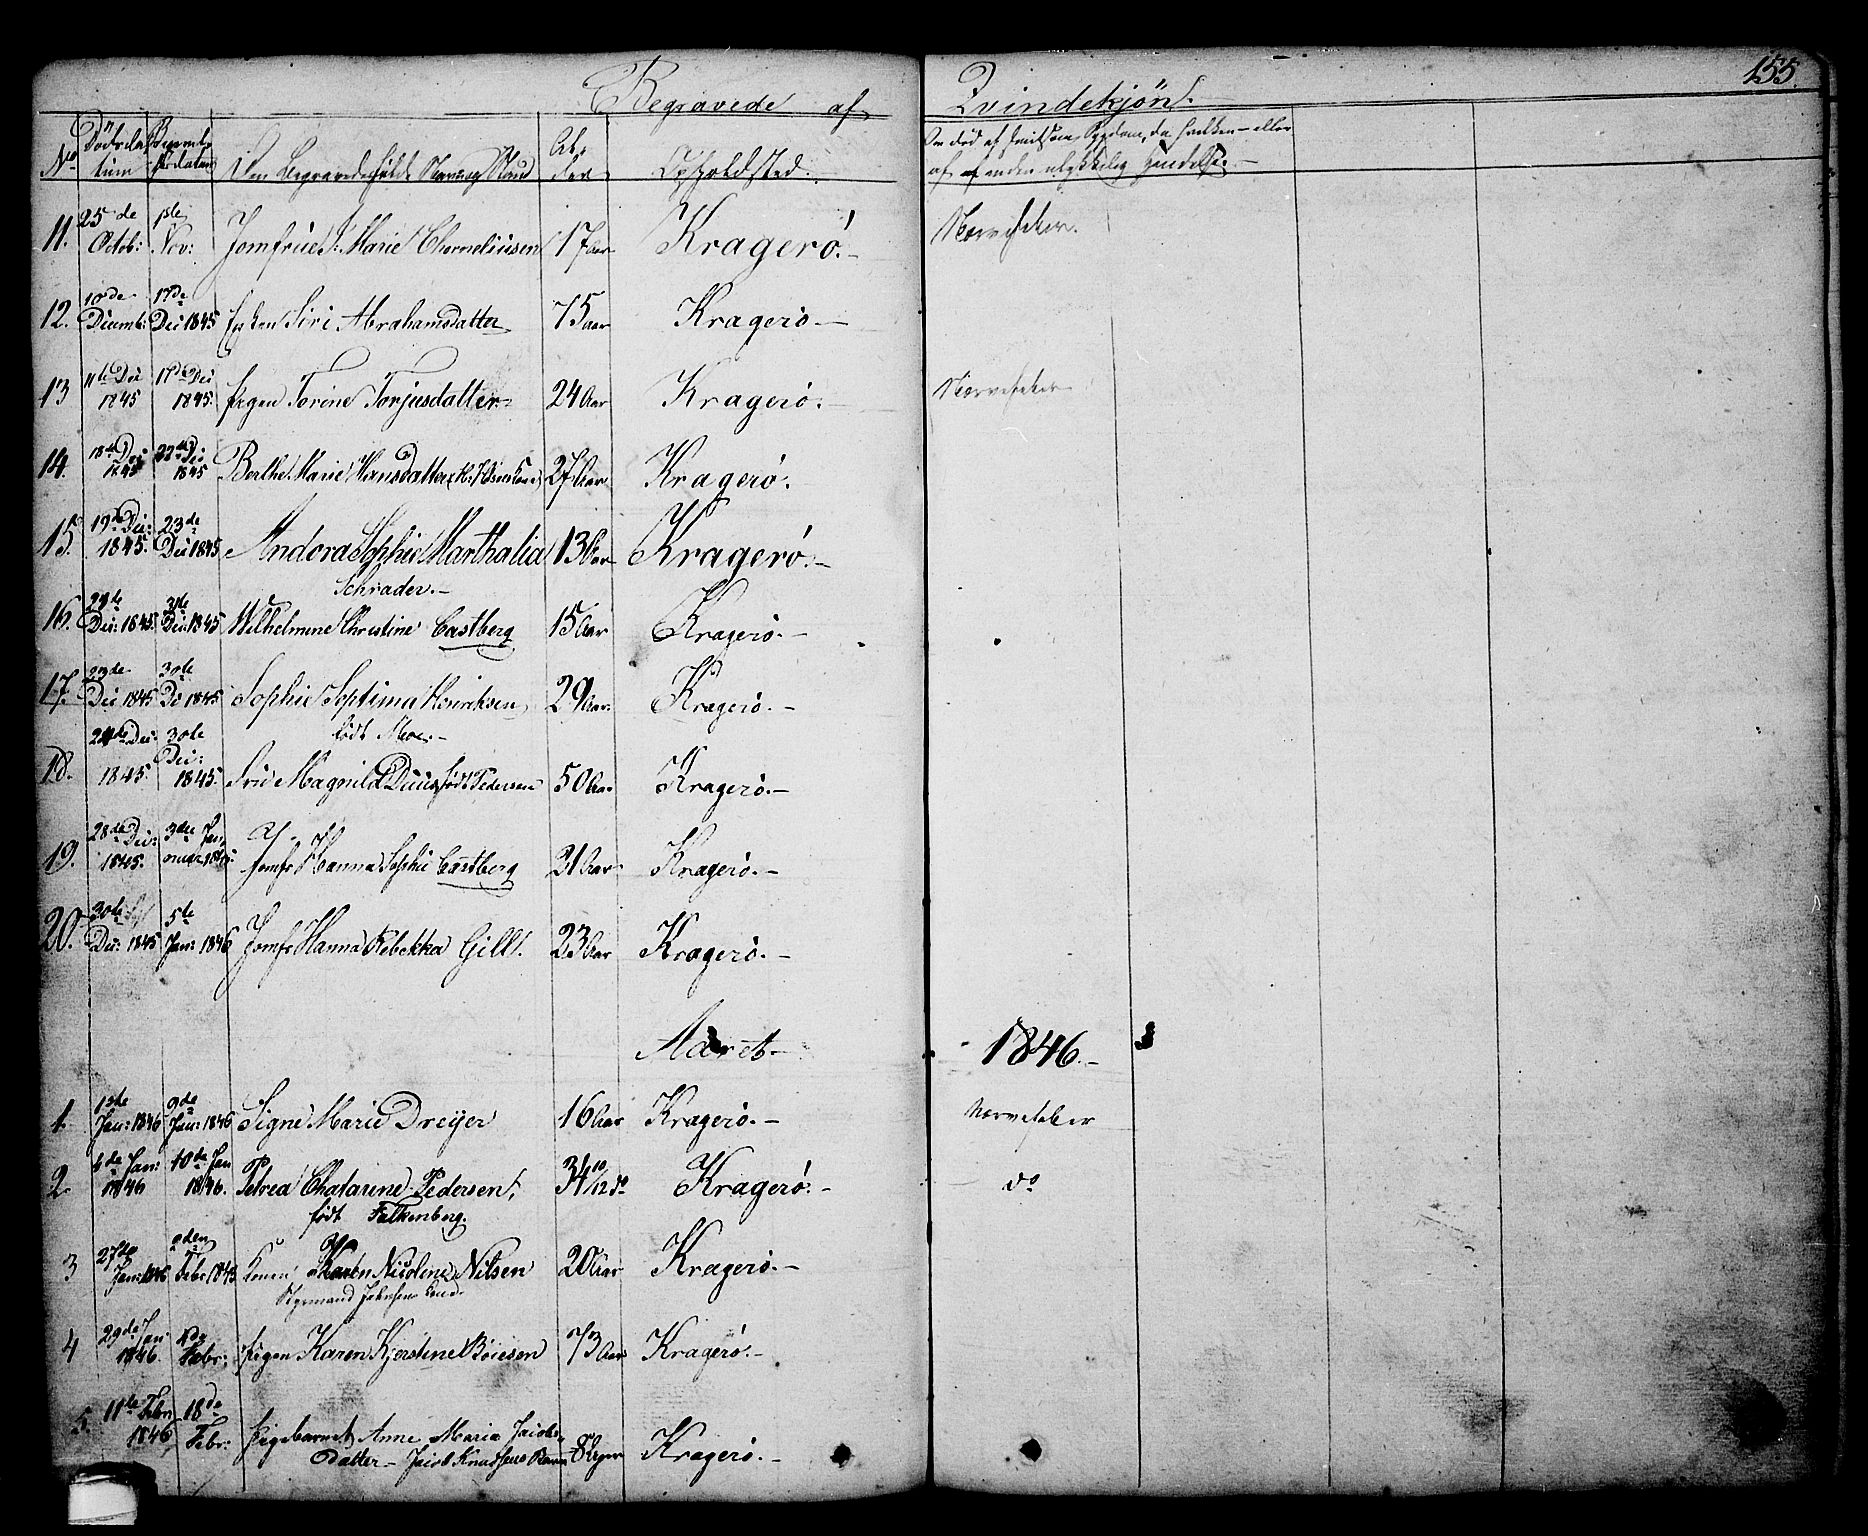 155.
Begravede af Qvindekjøn.
No Dödsda Begravel
tum sesdatum Den Begravedes fulde Navn og Stand Al- der Opholdsted.
Om död af smitsom Sygdom, da hvilken – eller
af en anden ulykkelig Hendelse. –
11. 25de Octob: 1ste Nov: Jomfrue S: Marie Chorneliusen 17 Aar Kragerö. – Nervefeber.
12. 10de Decemb: 17de Dec 1845 Enken Siri Abrahamsdatter 75 aar Kragerö. –
13 11te Dec 1845 17de Dec 1845. Pigen Torine Torjusdatter 24 Aar Kragerö. Nervefeber
14. 18de Dec 1845 22de Dec 1845 Berthe Marie Hansdatter 27 Aar Kragerö.
15. 19de Dec: 1845. 23de Dec 1845 Andora Sophie Marthalia 13 Aar Kragerö. –
Schrader. –
16. Dec: 1845. Dec: 1845 Wilhelmine Christine Castberg 15 Aar Kragerö. –
17. 23de Dec 1845 30te Dc 1845 Sophie Septima Henriksen 29 Aar. Kragerö. –
födt Moe. –
18. 24de Dec: 1845. 30te Dec: 1845. Frue Magnild Duus födt Pedersen 50 Aar Kragerö. –
19. 28de Dec: 1845. 3die Jan, Jomfr Hanna Sophie Castberg 21 Aar Kragerö. –
20. 30te Dec: 1845 5te Jan: 1846 Jomfr Hanna Rebekka Gill. 23 Aar Kragerö. –
Aaret – 1846. –
1. 1ste Jan: 1846 9de Jan: 1846 Signe Marie Dreyer 16 Aar Kragerö. – Nervefeber
2 6de Jan: 1846 10de Jan 1846. Petrea Chatarine Pedersen, 34 10/12 do Kragerö. – do
födt Falkenberg.
3 27de Jan: 1846 2den Febr 1845 Konen Karen Nicoline Nilsen 20 Aar Kragerö. –
Styrmand Johnsens Kone
4 29de Jan 1846. Febr: Pigen Karen Kjerstine Böiesen 73 Aar Kragerö. –
5. 11te Febr 1846 18de Febr: Pigebarnet Anne Maria Jacobs-
Datter – Jacob Knudsens Barn 8 Uger Kragerö. –